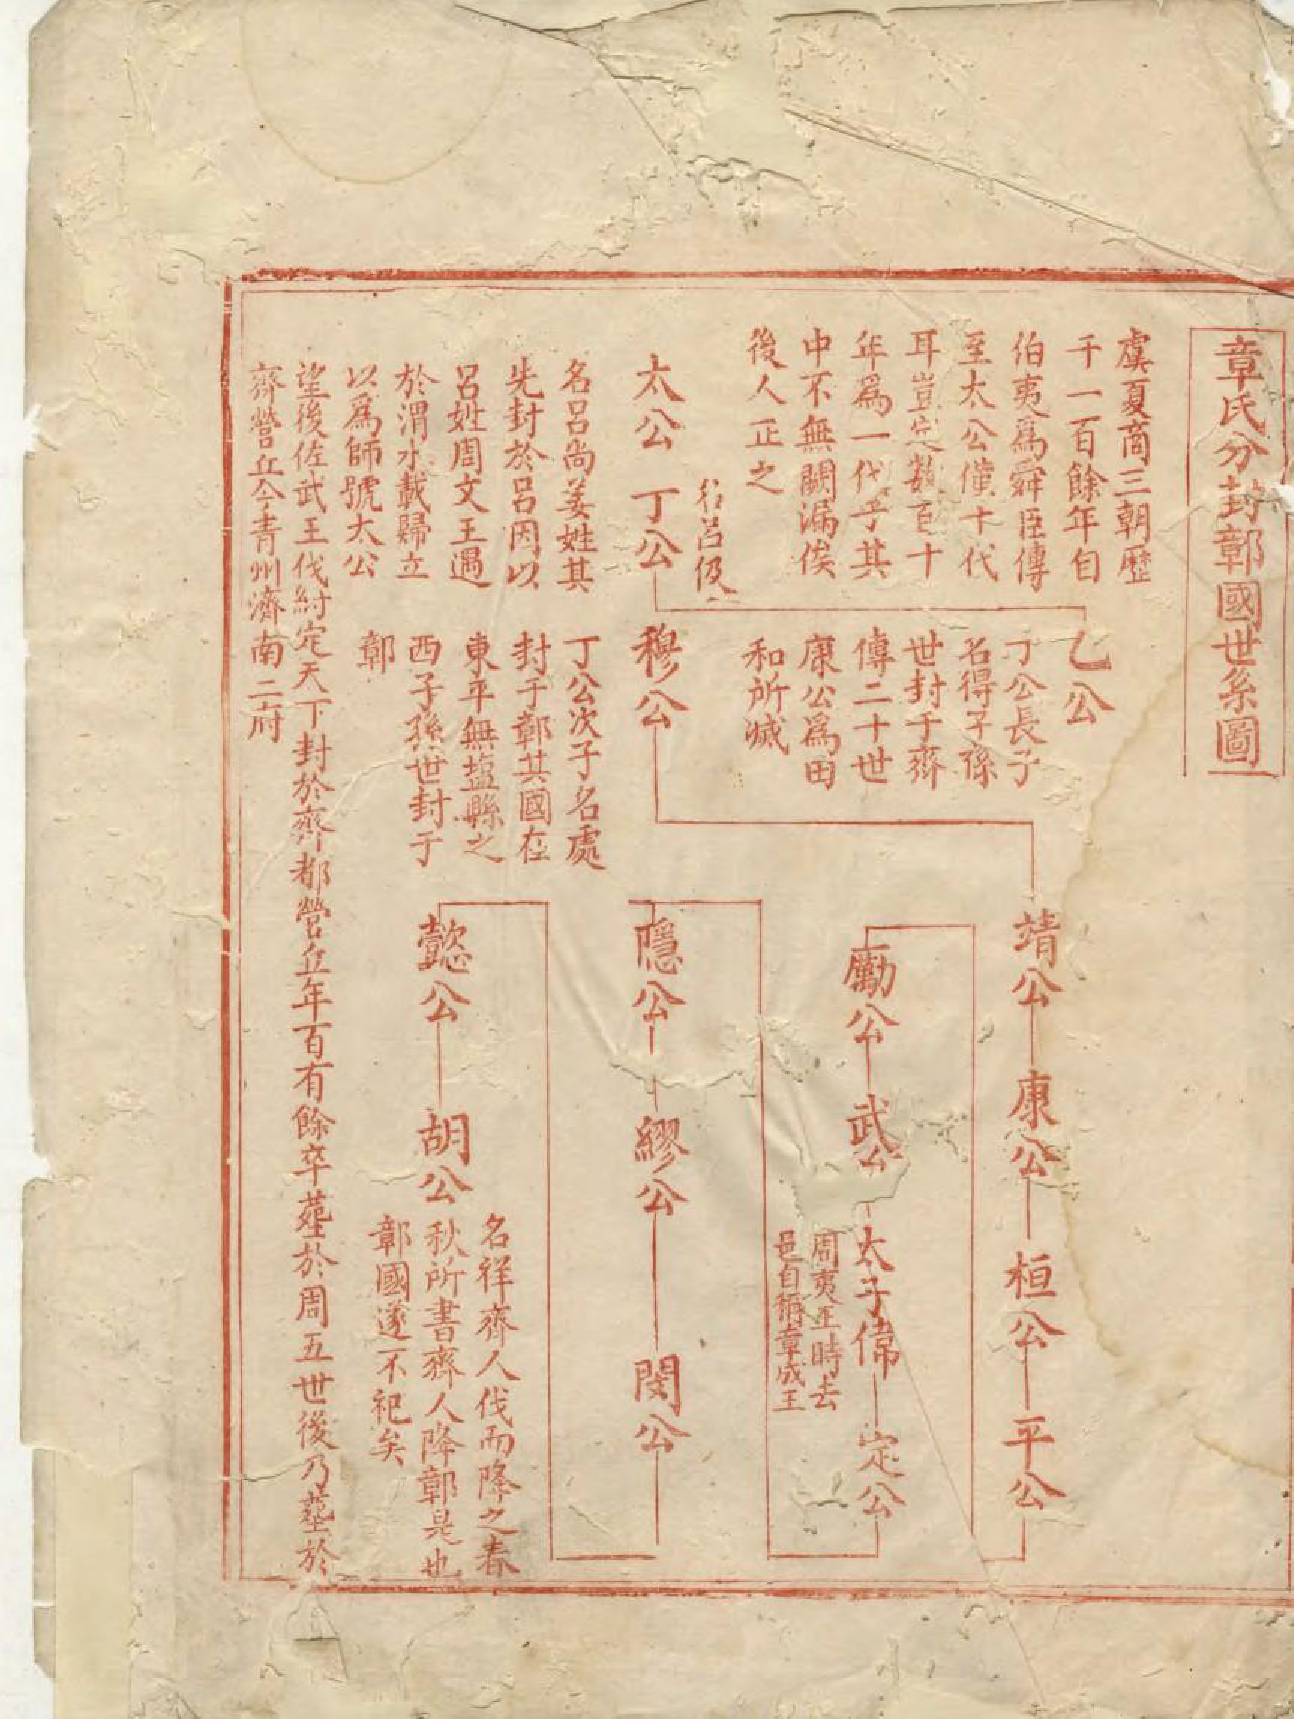 章氏分封鄣國世系圖
虞夏商三朝歷
千一百餘年自
伯夷爲舜臣傳
至太公僅十代
耳豈定數百十
年爲一代乎其
中不無闕漏俟
後人正之
太公
名呂尚姜姓其
先封於呂因以
呂姓周文王遇
於渭水載歸立
以爲師號太公
望後佐武王伐紂定天下封於齊都營丘年百有餘卒塟於周五世後乃塟於
齊營丘今青州濟南二府
丁公
名呂伋
乙公
丁公長子
名得子孫
世封于齊
傳二十世
康公爲田
和所滅
穆公
丁公次子名處
封于鄣其國在
東平無塩縣之
西子孫世封于
鄣
靖公
康公
桓公
平公
勵公
武公
太子偉
周夷王時去
邑自稱章成王
定公
隱公
繆公
閔公
懿公
胡公
名祥齊人伐而降之春
秋所書齊人降鄣是也
鄣國遂不祀矣